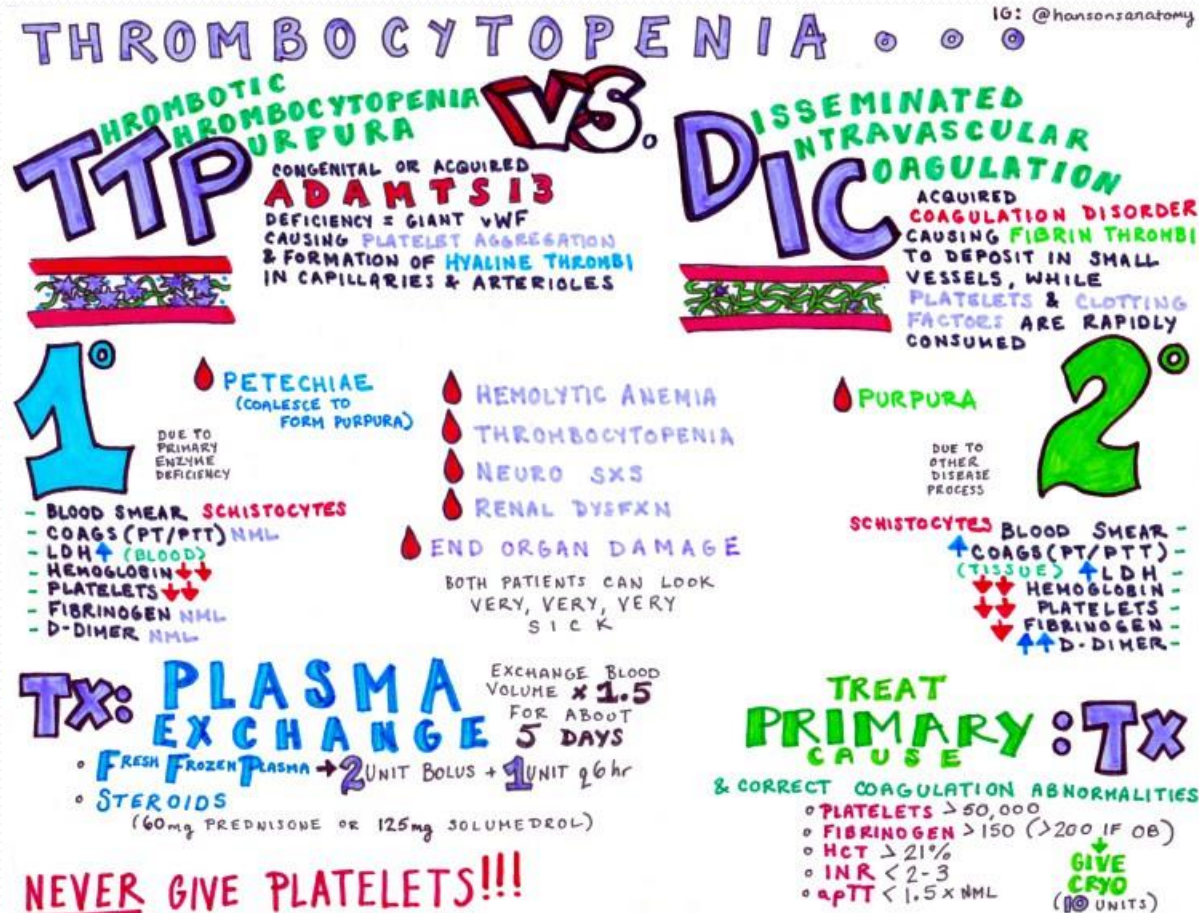 IG: @hansonsanatomy
THROMBOCYTOPENIA...
TTP
THROMBOTIC
THROMBOCYTOPENIA
PURPURA
CONGENITAL OR ACQUIRED
ADAMTS13
DEFICIENCY = GIANT vWF
CAUSING PLATELET AGGREGATION
& FORMATION OF HYALINE THROMBI
IN CAPILLARIES & ARTERIOLES
VS.
DISSEMINATED
INTRAVASCULAR
COAGULATION
ACQUIRED
COAGULATION DISORDER
CAUSING FIBRIN THROMBI
TO DEPOSIT IN SMALL
VESSELS, WHILE
PLATELETS & CLOTTING
FACTORS ARE RAPIDLY
CONSUMED
1°
DUE TO
PRIMARY
ENZYME
DEFICIENCY
PETECHIAE
(COALESCE TO
FORM PURPURA)
- BLOOD SMEAR SCHISTOCYTES
- COAGS (PT/PTT) NML
- LDH ↑ (BLOOD)
- HEMOGLOBIN ↓↓
- PLATELETS ↓↓
- FIBRINOGEN NML
- D-DIMER NML
HEMOLYTIC ANEMIA
THROMBOCYTOPENIA
NEURO SXS
RENAL DYSFXN
END ORGAN DAMAGE
BOTH PATIENTS CAN LOOK
VERY, VERY, VERY
SICK
PURPURA
2°
DUE TO
OTHER
DISEASE
PROCESS
SCHISTOCYTES BLOOD SMEAR -
↑ COAGS (PT/PTT) -
(TISSUE) ↑ LDH -
↓↓ HEMOGLOBIN -
↓↓ PLATELETS -
↓ FIBRINOGEN -
↑↑ D-DIMER -
TX: PLASMA
EXCHANGE
EXCHANGE BLOOD
VOLUME x 1.5
FOR ABOUT
5 DAYS
° FRESH FROZEN PLASMA → 2 UNIT BOLUS + 1 UNIT q6hr
° STEROIDS
(60mg PREDNISONE OR 125mg SOLUMEDROL)
NEVER GIVE PLATELETS!!!
TREAT
PRIMARY :TX
CAUSE
& CORRECT COAGULATION ABNORMALITIES
° PLATELETS >50,000
° FIBRINOGEN >150 (>200 IF OB)
° HCT >21%
° INR <2-3
° apTT <1.5 x NML
↓
GIVE
CRYO
(10 UNITS)